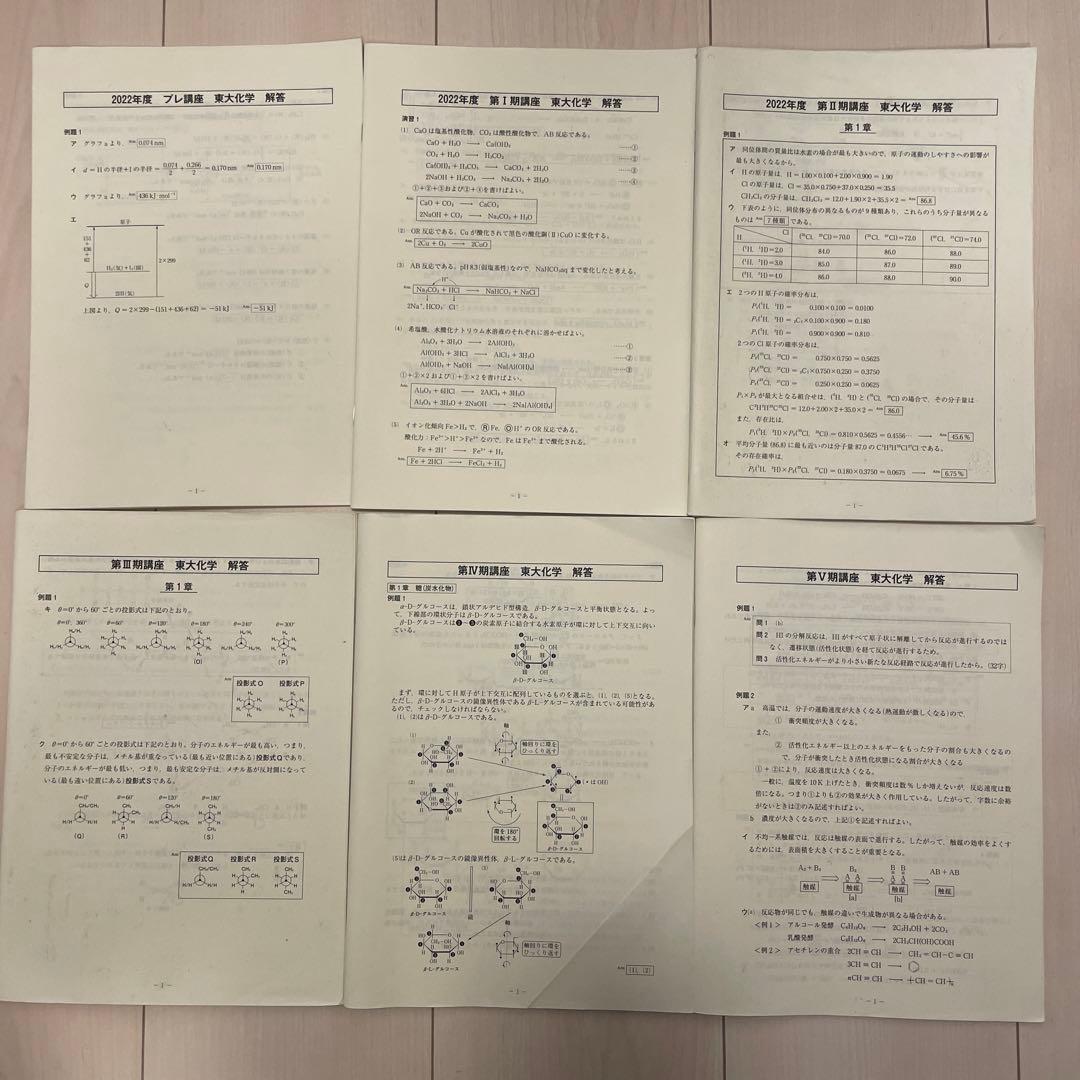 2022年度 プレ講座 東大化学 解答
例題1
ア グラフェより、Ans 0.074 nm
イ d=Hの半径+Iの半径= 0.074/2 + 0.266/2 =0.170 nm Ans 0.170 nm
ウ グラフェより、Ans 436 kJ·mol⁻¹
エ
原子
151+436+62
2×299
H₂(気)+I₂(固)
Q
2HI(気)
上図より、Q=2×299−(151+436+62)=−51 kJ Ans −51 kJ
−1−
2022年度 第Ⅰ期講座 東大化学 解答
演習1
(1) CaOは塩基性酸化物、CO₂は酸性酸化物で、AB反応である。
CaO + H₂O → Ca(OH)₂ ……①
CO₂ + H₂O → H₂CO₃ ……②
Ca(OH)₂ + H₂CO₃ → CaCO₃ + 2H₂O ……③
2NaOH + H₂CO₃ → Na₂CO₃ + 2H₂O ……④
①+②+③および②+④を書けばよい。
Ans
CaO + CO₂ → CaCO₃
2NaOH + CO₂ → Na₂CO₃ + H₂O
(2) OR反応である。Cuが酸化されて黒色の酸化銅(Ⅱ)CuOに変化する。
Ans 2Cu + O₂ → 2CuO
(3) AB反応である。pH 8.3(弱塩基性)なので、NaHCO₃aqまで変化したと考える。
H⁺
Ans Na₂CO₃ + HCl → NaHCO₃ + NaCl
2Na⁺, HCO₃⁻ Cl⁻
(4) 希塩酸、水酸化ナトリウム水溶液のそれぞれに溶かせばよい。
Al₂O₃ + 3H₂O → 2Al(OH)₃ ……①
Al(OH)₃ + 3HCl → AlCl₃ + 3H₂O ……②
Al(OH)₃ + NaOH → Na[Al(OH)₄] ……③
①+②×2および①+③×2を書けばよい。
Ans
Al₂O₃ + 6HCl → 2AlCl₃ + 3H₂O
Al₂O₃ + 3H₂O + 2NaOH → 2Na[Al(OH)₄]
(5) イオン化傾向Fe>H₂で、Ⓡ Fe, Ⓞ H⁺のOR反応である。
酸化力:Fe³⁺>H⁺>Fe²⁺なので、FeはFe²⁺まで酸化される。
Fe + 2H⁺ → Fe²⁺ + H₂
Ans Fe + 2HCl → FeCl₂ + H₂
−1−
2022年度 第Ⅱ期講座 東大化学 解答
第1章
例題1
ア 同位体間の質量比は水素の場合が最も大きいので、原子の運動のしやすさへの影響が
最も大きくなるから。
イ Hの原子量は、H=1.00×0.100+2.00×0.900=1.90
Clの原子量は、Cl=35.0×0.750+37.0×0.250=35.5
CH₂Cl₂の分子量は、CH₂Cl₂=12.0+1.90×2+35.5×2= Ans 86.8
ウ 下表のように、同位体分布の異なるものが9種類あり、これらのうち分子量が異なる
ものは Ans 7種類 である。
H Cl (³⁵Cl, ³⁵Cl)=70.0 (³⁵Cl, ³⁷Cl)=72.0 (³⁷Cl, ³⁷Cl)=74.0
(¹H, ¹H)=2.0 84.0 86.0 88.0
(¹H, ²H)=3.0 85.0 87.0 89.0
(²H, ²H)=4.0 86.0 88.0 90.0
エ 2つのH原子の確率分布は、
P₁(¹H, ¹H)= 0.100×0.100=0.0100
P₁(¹H, ²H)=₂C₁×0.100×0.900=0.180
P₁(²H, ²H)= 0.900×0.900=0.810
2つのCl原子の確率分布は、
P₂(³⁵Cl, ³⁵Cl)= 0.750×0.750=0.5625
P₂(³⁵Cl, ³⁷Cl)=₂C₁×0.750×0.250=0.3750
P₂(³⁷Cl, ³⁷Cl)= 0.250×0.250=0.0625
P₁×P₂が最大となる組合せは、(²H, ²H)と(³⁵Cl, ³⁵Cl)の場合で、その分子量は
C²H²H³⁵Cl³⁵Cl=12.0+2.00×2+35.0×2= Ans 86.0
また、存在比は、
P₁(²H, ²H)×P₂(³⁵Cl, ³⁵Cl)=0.810×0.5625=0.4556… → Ans 45.6%
オ 平均分子量(86.8)に最も近いのは分子量87.0のC¹H²H³⁵Cl³⁷Clである。
その存在確率は、
P₁(¹H, ²H)×P₂(³⁵Cl, ³⁷Cl)=0.180×0.3750=0.0675 → Ans 6.75%
−1−
第Ⅲ期講座 東大化学 解答
第1章
例題1
キ θ=0°から60°ごとの投影式は下記のとおり。
θ=0°, 360° θ=60° θ=120° θ=180° θ=240° θ=300°
(O) (P)
Ans 投影式O 投影式P
ク θ=0°から60°ごとの投影式は下記のとおり。分子のエネルギーが最も高い、つまり、
最も不安定な分子は、メチル基が重なっている(最も近い位置にある)投影式Qであり、
分子のエネルギーが最も低い、つまり、最も安定な分子は、メチル基が反対側になって
いる(最も遠い位置にある)投影式Sである。
θ=0° θ=60° θ=120° θ=180°
(Q) (R) (S)
Ans 投影式Q 投影式R 投影式S
−1−
第Ⅳ期講座 東大化学 解答
第1章 糖(炭水化物)
例題1
α-D-グルコースは、鎖状アルデヒド型構造、β-D-グルコースと平衡状態となる。よっ
て、下線部の環状分子はβ-D-グルコースである。
β-D-グルコースは❷〜❺の炭素原子に結合する水素原子が環に対して上下交互に向い
ている。
β-D-グルコース
まず、環に対してH原子が上下交互に配列しているものを選ぶと、(1), (2), (5)となる。
ただし、β-D-グルコースの鏡像異性体であるβ-L-グルコースが含まれている可能性があ
るので、チェックしなければならない。
(1), (2)はβ-D-グルコースである。
(1)
軸
軸回りに環を
ひっくり返す
(•はOH)
(2)
環を180°
回転する
β-D-グルコース
(5)はβ-D-グルコースの鏡像異性体、β-L-グルコースである。
(5)
β-D-グルコース
鏡
軸
軸回りに環を
ひっくり返す
β-L-グルコース
Ans (1), (2)
−1−
第Ⅴ期講座 東大化学 解答
例題1
Ans 問1 (b)
問2 HIの分解反応は、HIがすべて原子状に解離してから反応が進行するのでは
なく、遷移状態(活性化状態)を経て反応が進行するため。
問3 活性化エネルギーがより小さい新たな反応経路で反応が進行したから。(32字)
例題2
ア a 高温では、分子の運動速度が大きくなる(熱運動が激しくなる)ので、
① 衝突頻度が大きくなる。
また、
② 活性化エネルギー以上のエネルギーをもった分子の割合も大きくなるの
で、分子が衝突したとき活性化状態になる割合が大きくなる
①+②により、反応速度は大きくなる。
一般に、温度を10 K上げたとき、衝突頻度は数%しか増えないが、反応速度は数
倍になる。つまり①よりも②の効果が大きく作用している。したがって、字数に余裕
がないときは②のみ記述すればよい。
b 濃度が大きくなるので、上記①を記述すればよい。
イ 不均一系触媒では、反応は触媒の表面で進行する。したがって、触媒の効率をよくす
るためには、表面積を大きくすることが重要となる。
A₂+B₂ B₂ A A 触媒 [a] B B A A 触媒 [b] AB+AB 触媒
ウ(a) 反応物が同じでも、触媒の違いで生成物が異なる場合がある。
<例1> アルコール発酵 C₆H₁₂O₆ → 2C₂H₅OH + 2CO₂
乳酸発酵 C₆H₁₂O₆ → 2CH₃CH(OH)COOH
<例2> アセチレンの重合 2CH≡CH → CH₂=CH−C≡CH
3CH≡CH →
nCH≡CH → ─[CH=CH]─n
−1−